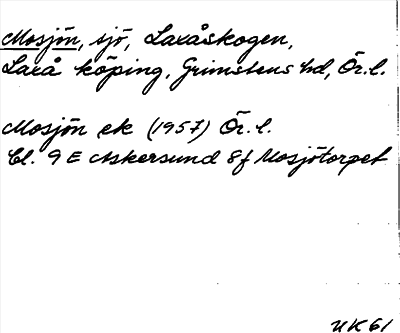 Mosjön, sjö, Laxåskogen,
Laxå köping, Grimstens hd, Ör. l.
Mosjön ek (1957) Ör. l.
Bl. 9 E Askersund 8f Mosjötorpet
UK 61